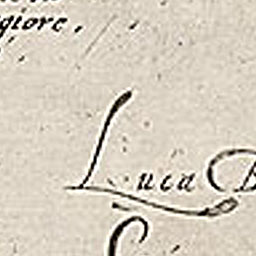 giore,
Luca B